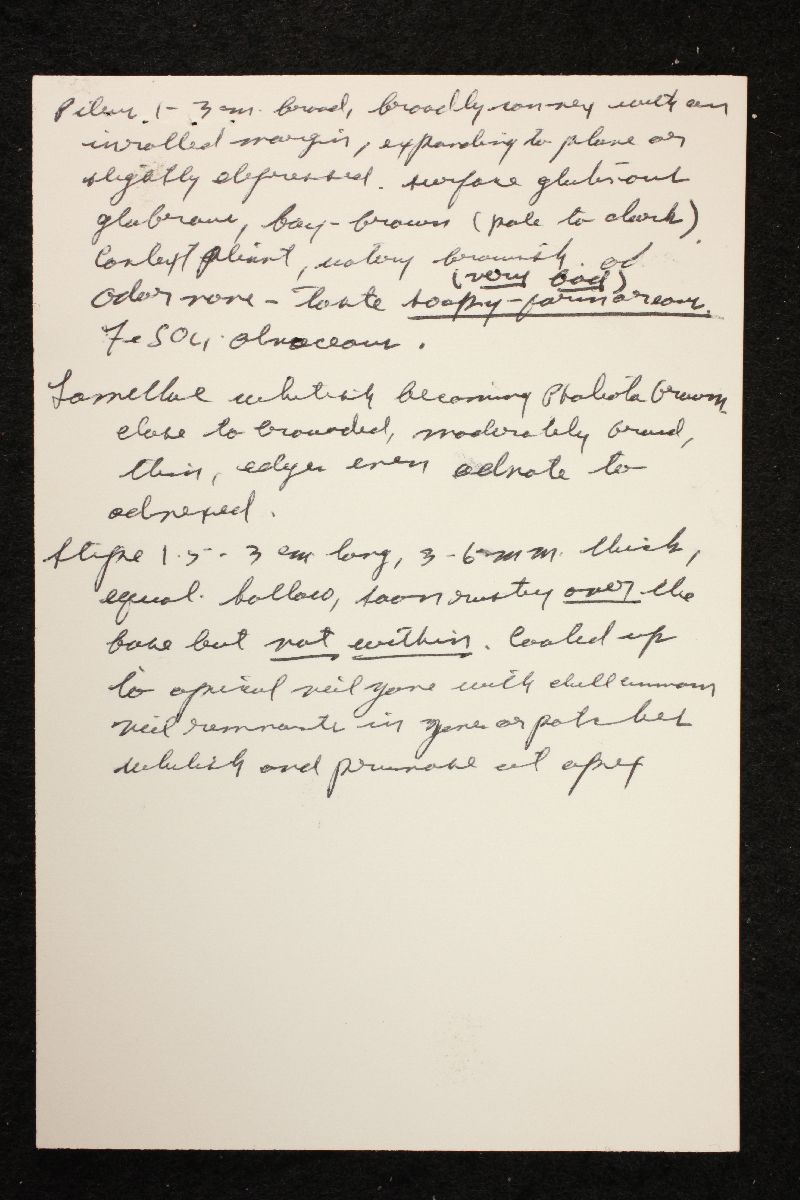 Pileus 1-3 cm. broad, broadly convex with an
inrolled margin, expanding to plane or
slightly depressed. surface glutinous
glabrous, bay-brown (pale to dark)
Context pliant, watery brownish.
(very bad)
Odor none - taste soapy-farinaceous.
FeSO4, olivaceous.
Lamellae whitish becoming Pholiota brown
close to crowded, moderately broad,
thin, edges even adnate to
adnexed.
Stipe 1.5 - 3 cm long, 3-6 mm. thick,
equal. hollow, soon rusty over the
base but not within. Coated up
to apical veil zone with dull
veil remnants in zones or patches
whitish and pruinose at apex